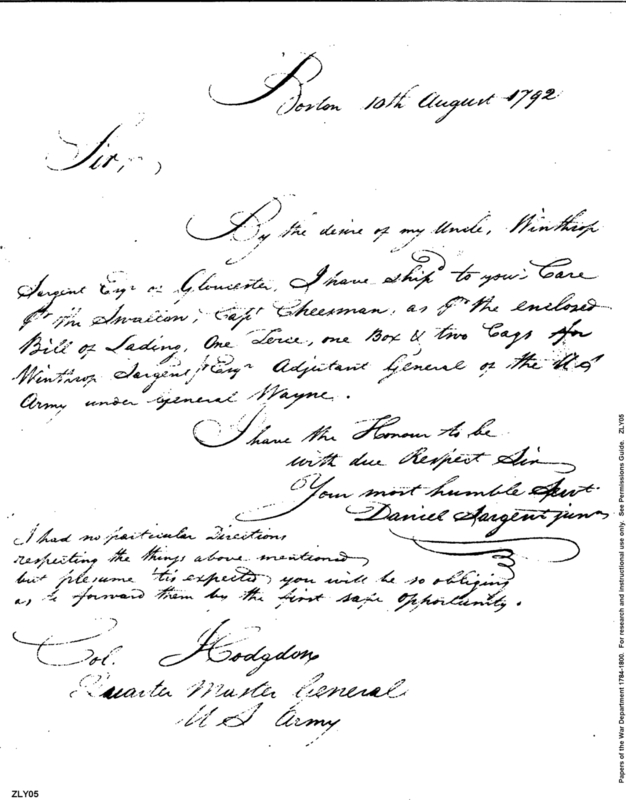 Boston 10th August 1792
Sir,
By the desire of my Uncle, Winthrop
Sargent Esqr of Gloucester, I have ship'd to your Care
pr the Swallow, Capt Cheesman, as pr the enclosed
Bill of Lading, One Terce, one Box & two Cags for
Winthrop Sargent jr Esqr Adjutant General of the US
Army under General Wayne.
I have the Honour to be
with due Respect Sir
Your most humble Servt
Daniel Sargent junr
I had no particular Directions
respecting the things above mentioned
but presume 'tis expected, you will be so obliging
as to forward them by the first safe opportunity.
Col. Hodgdon
Quarter Master General
US Army
ZLY05
Papers of the War Department 1784-1800. For research and instructional use only. See Permissions Guide. ZLY05